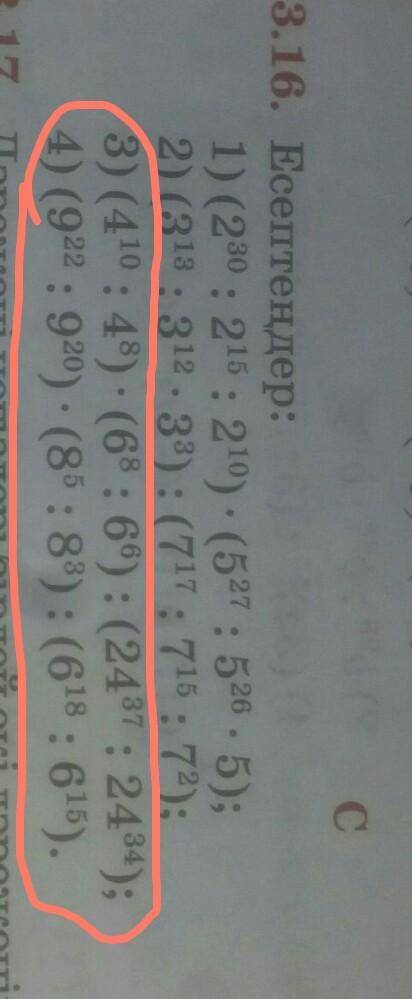 С
3.16. Есептеңдер:
1) (2³⁰ : 2¹⁵ : 2¹⁰) · (5²⁷ : 5²⁶ · 5);
2) (3¹³ : 3¹² · 3³) : (7¹⁷ : 7¹⁵ : 7²);
3) (4¹⁰ : 4⁸) · (6⁸ : 6⁶) : (24³⁷ : 24³⁴);
4) (9²² : 9²⁰) · (8⁵ : 8³) : (6¹⁸ : 6¹⁵).